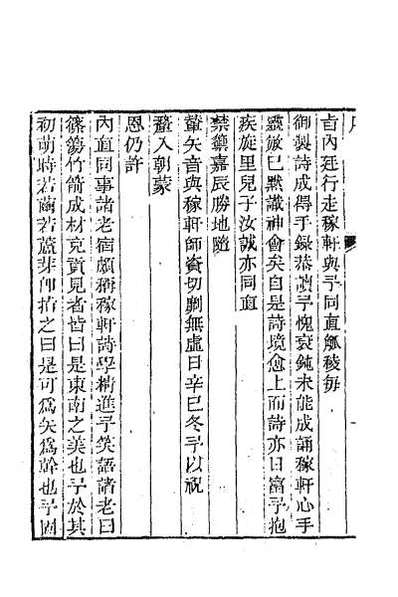 直內廷行走稼軒與予同直觚稜每
御製詩成得手錄恭讀予愧衰鈍未能成誦稼軒心手
靈敏已默識神會矣自是詩境愈上而詩亦日富予抱
疾旋里兒子汝誠亦同直
禁籞嘉辰勝地隨
輦矢音與稼軒師資切劘無虛日辛巳冬予以祝
釐入朝蒙
恩仍許
內直同事諸老宿頗稱稼軒詩學精進予笑語諸老曰
篠簜竹箭成材充貢見者皆曰是東南之美也予於其
初萌時若繭若非卽指之曰是可為矢為幹也予固